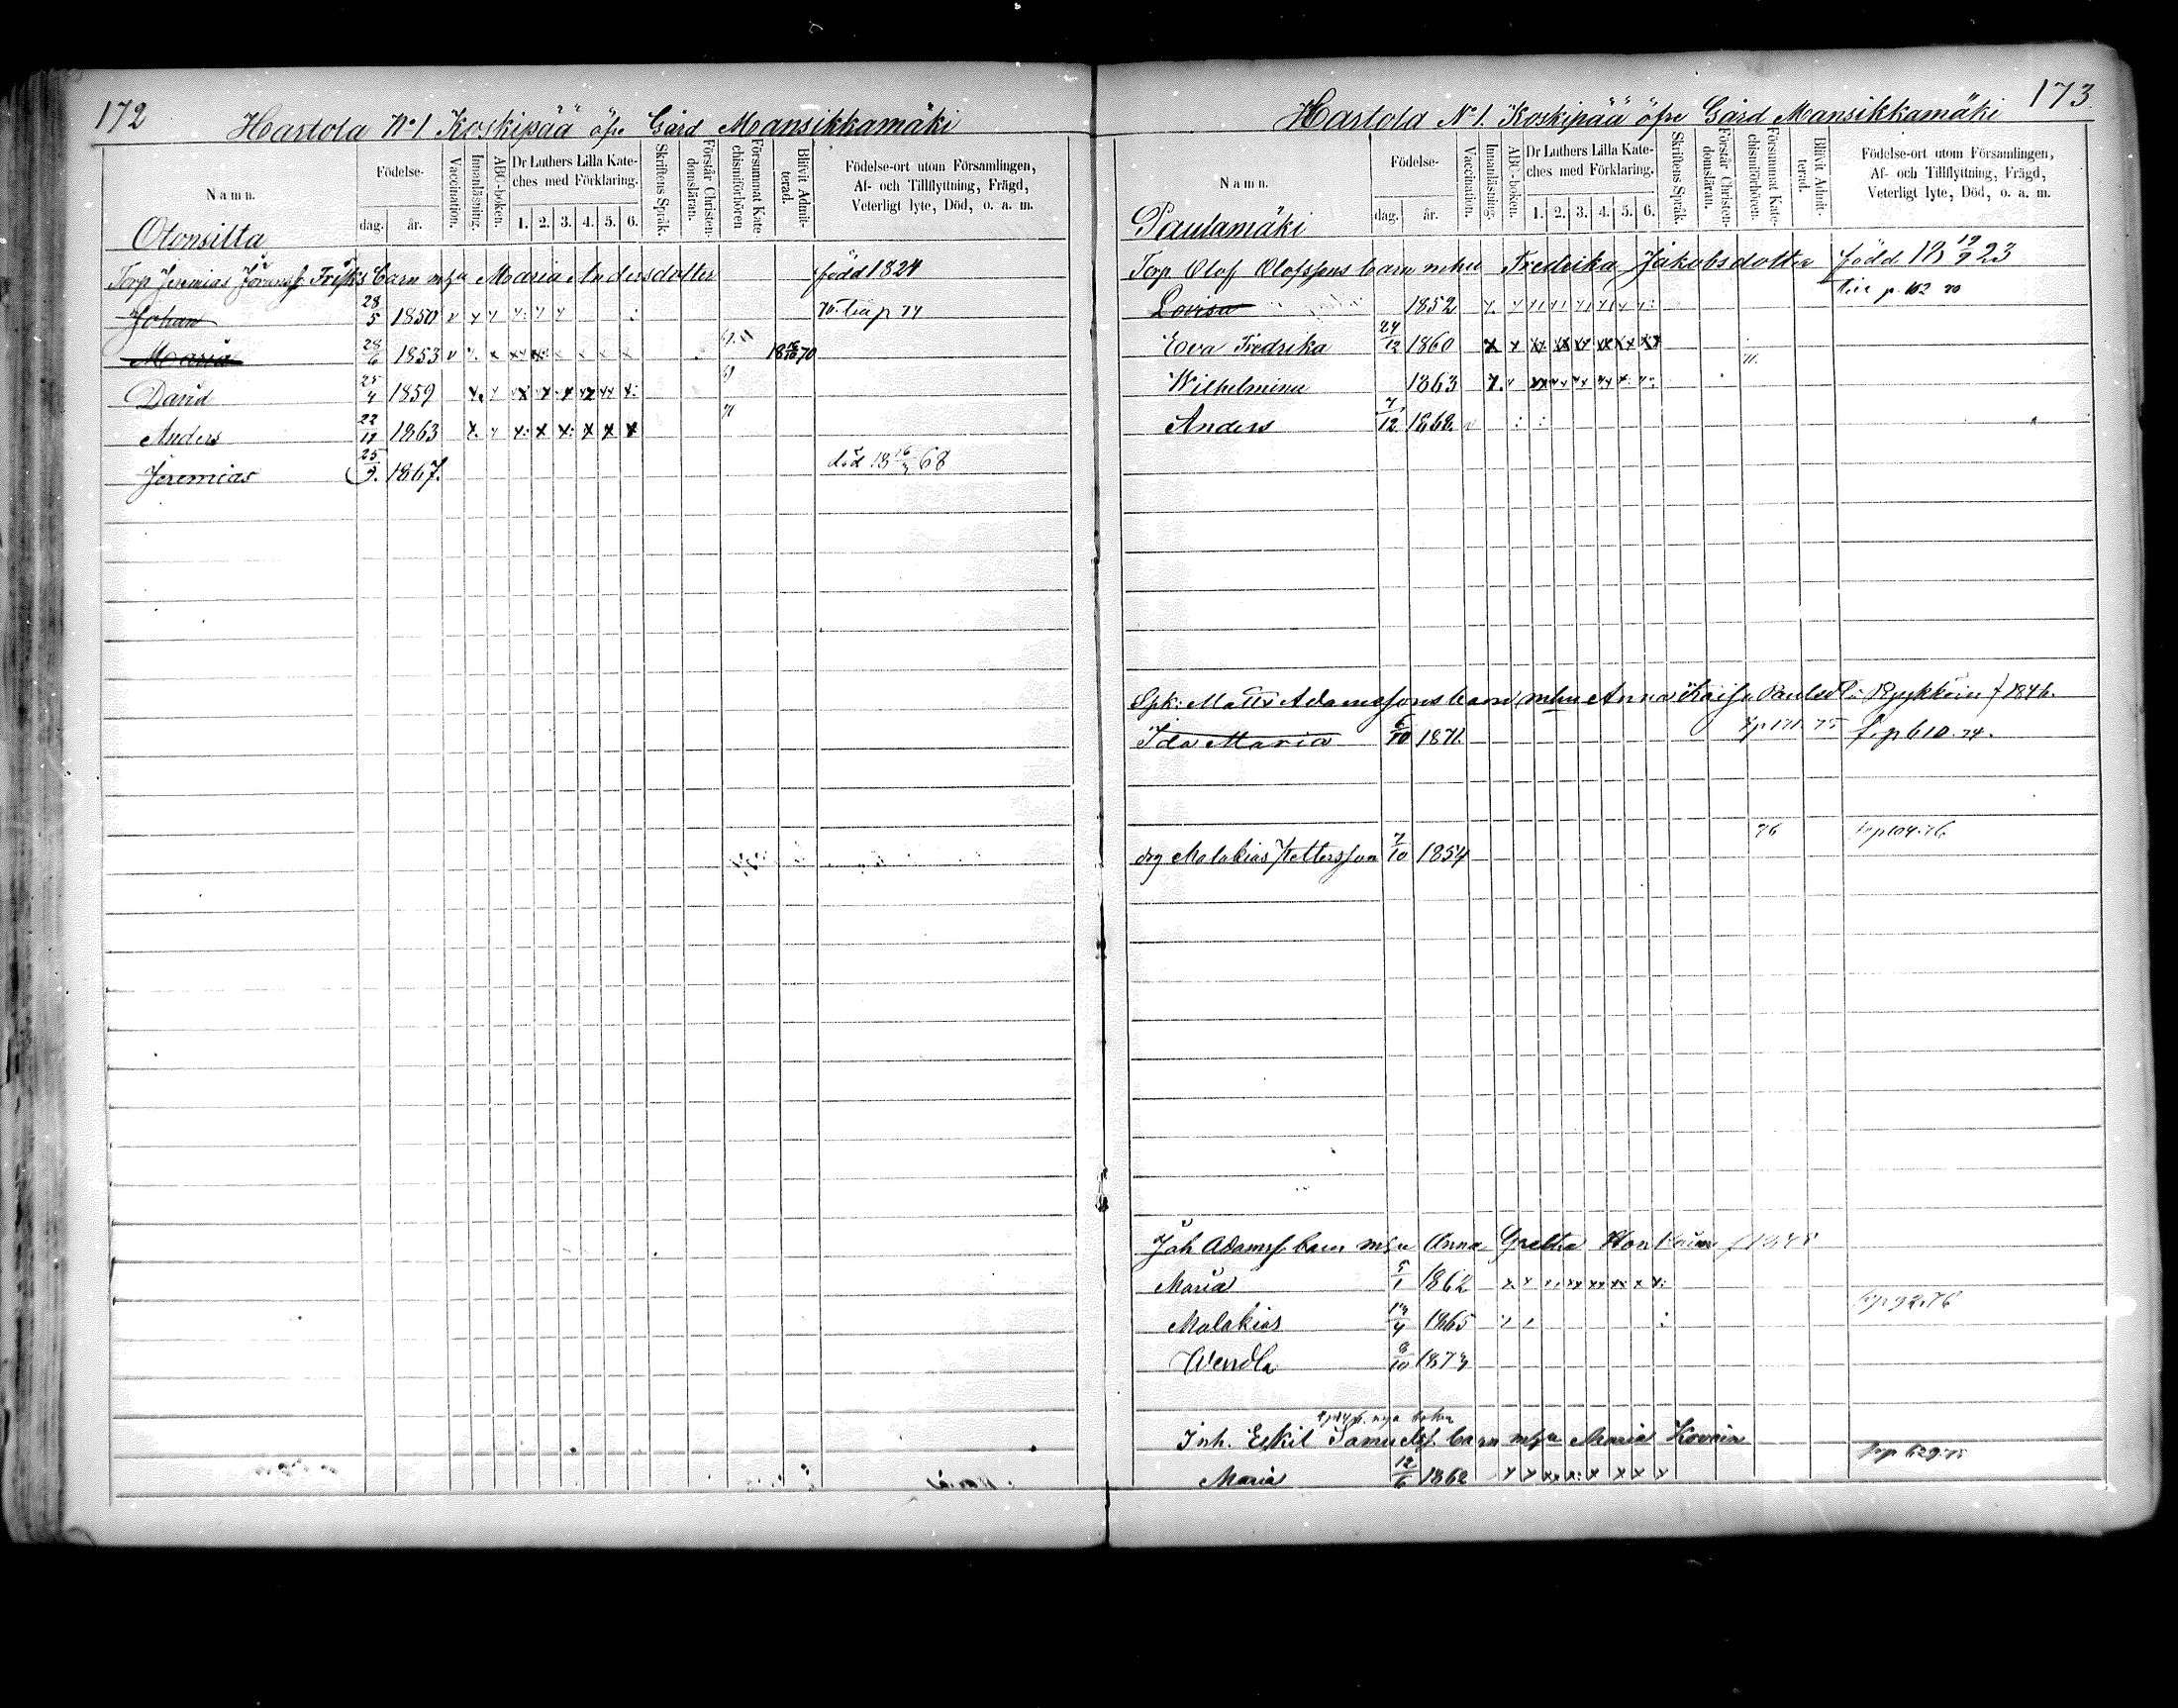 172
Hartola No 1 Koskipää öfre Gård Mansikkamäki
Namn.
Födelse-
dag. år.
Vaccination.
Innanläsning.
ABC-boken.
Dr Luthers Lilla Kate-
ches med Förklaring.
1. 2. 3. 4. 5. 6.
Skriftens Språk.
Förstår Christen-
domsläran.
Försummat Kate-
chismiförhören
Blifvit Admit-
terad.
Födelse-ort utom Församlingen,
Af- och Tillflyttning, Frägd,
Veterligt lyte, Död, o. a. m.
Otonsilta
Torp Jeremias Frisks barn mhu Maria Andersdotter född 1824
Johan 28/5 1850
Maria 28/6 1853 70
David 25/4 1859 69
Anders 22/12 1863 71
Jeremias 25/9. 1867. död 18 68
173
Hartola No 1. Koskipää öfre Gård Mansikkamäki
Namn.
Födelse-
dag. år.
Vaccination.
Innanläsning.
ABC-boken.
Dr Luthers Lilla Kate-
ches med Förklaring.
1. 2. 3. 4. 5. 6.
Skriftens Språk.
Förstår Christen-
domsläran.
Försummat Kate-
chismiförhören.
Blifvit Admit-
terad.
Födelse-ort utom Församlingen,
Af- och Tillflyttning, Frägd,
Veterligt lyte, Död, o. a. m.
Paulamäki
Torp Olof Olofssons barn mhu Fredrika Jakobsdotter född 18 19/9 23
Lovisa 1852 p. 162 70
Eva Fredrika 24/12 1860
Wilhelmina 1863 71.
Anders 7/12 1868
Spk: Matts Adamssons barn mhu Anna Kaisa f 1846.
Ida Maria 6/10 1871. fr p 610. 74.
drg Malakias Pettersson 7/10 1854 76
Joh Adamss. barn mhu Anna Gretha
Maria 5/1 1862
Malakias 1865
Wendla 1873
Inh. Eskil Samuelss. barn mhu Maria
Maria 12/6 1862